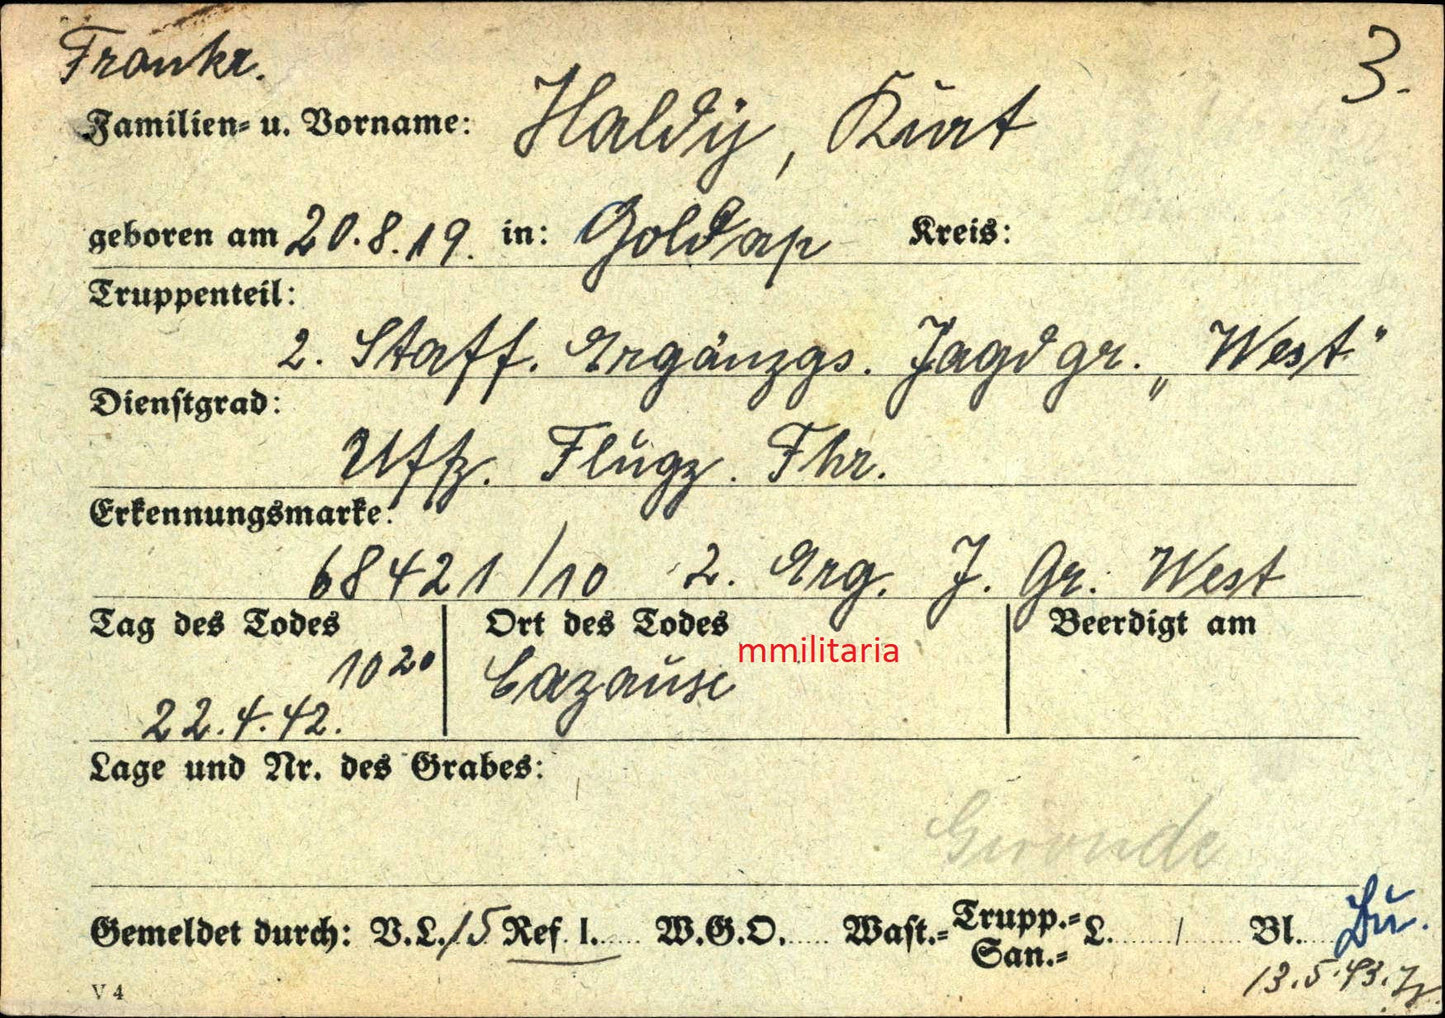 Frankr.
3.
Familien- u. Vorname: Haldÿ, Kurt
geboren am 20.8.19. in: Goldap Kreis:
Truppenteil:
2. Staff. Ergänzgs. Jagdgr. „West"
Dienstgrad:
Uffz. Flugz. Fhr.
Erkennungsmarke:
68421/10 2. Erg. J. Gr. West
Tag des Todes Ort des Todes Beerdigt am
mmilitaria
10 20 Cazause
22.4.42.
Lage und Nr. des Grabes:
Gironde
Gemeldet durch: V.L. 15 Ref. I. W.G.O. Wast.- Trupp.- San.- L. / Bl.
13.5.43.
V 4